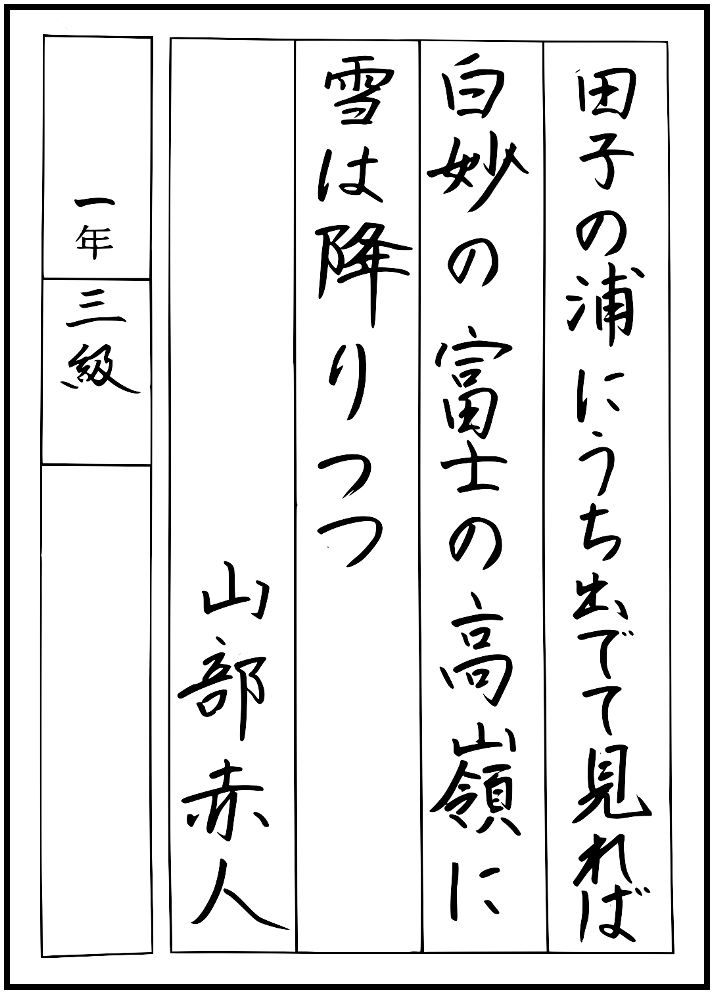 田子の浦にうち出でて見れば
白妙の富士の高嶺に
雪は降りつつ
山部赤人
一年
三級